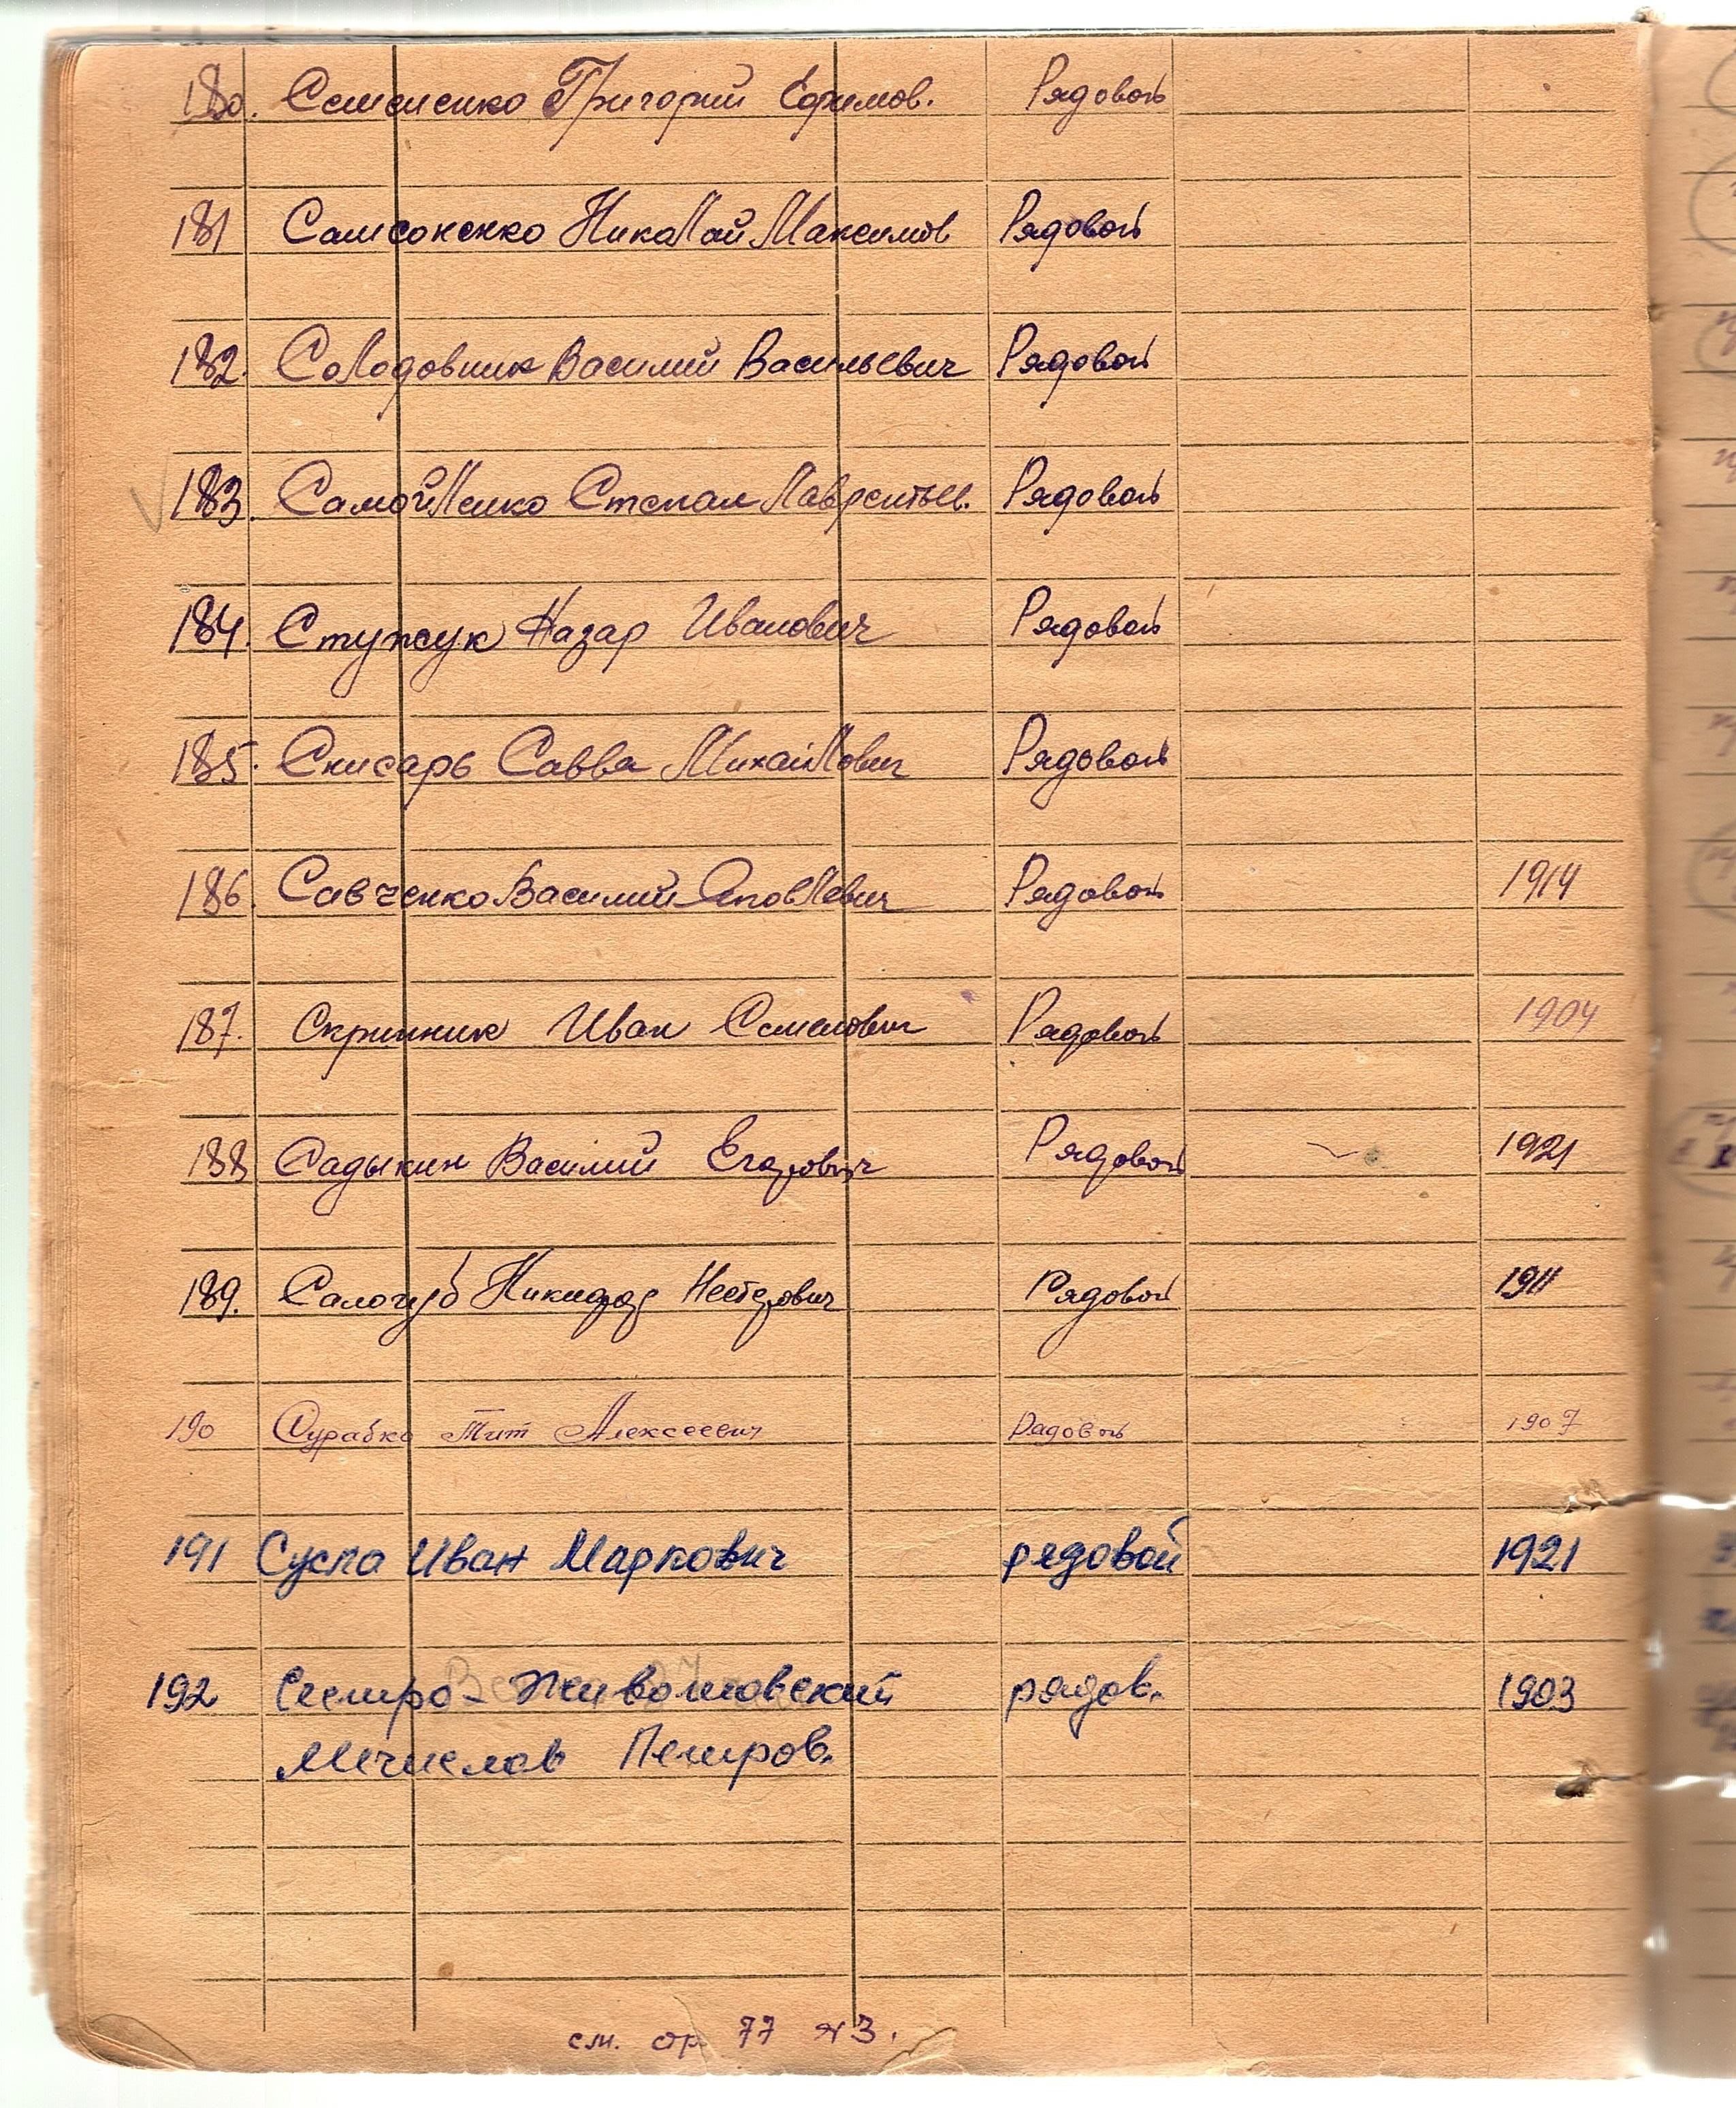 180. Семененко Григорий Ефимов. Рядовой
181 Самсоненко Николай Максимов Рядовой
182. Солодовник Василий Васильевич Рядовой
183. Самойленко Степан Лаврентьев. Рядовой
184. Стужук Назар Иванович Рядовой
185. Снисарь Савва Михайлович Рядовой
186. Савченко Василий Рядовой 1914
187. Скрипник Иван Семенович Рядовой 1904
188 Садыкин Василий Егорович Рядовой 1921
189. Салогуб Никифор Нестерович Рядовой 1911
190 Сурабко Тит Алексеевич Рядовой 1907
191 Суспа Иван Маркович рядовой 1921
192 Сестро-Живолковский рядов. 1903
Мечислав Петров.
см. стр. 77 н3.